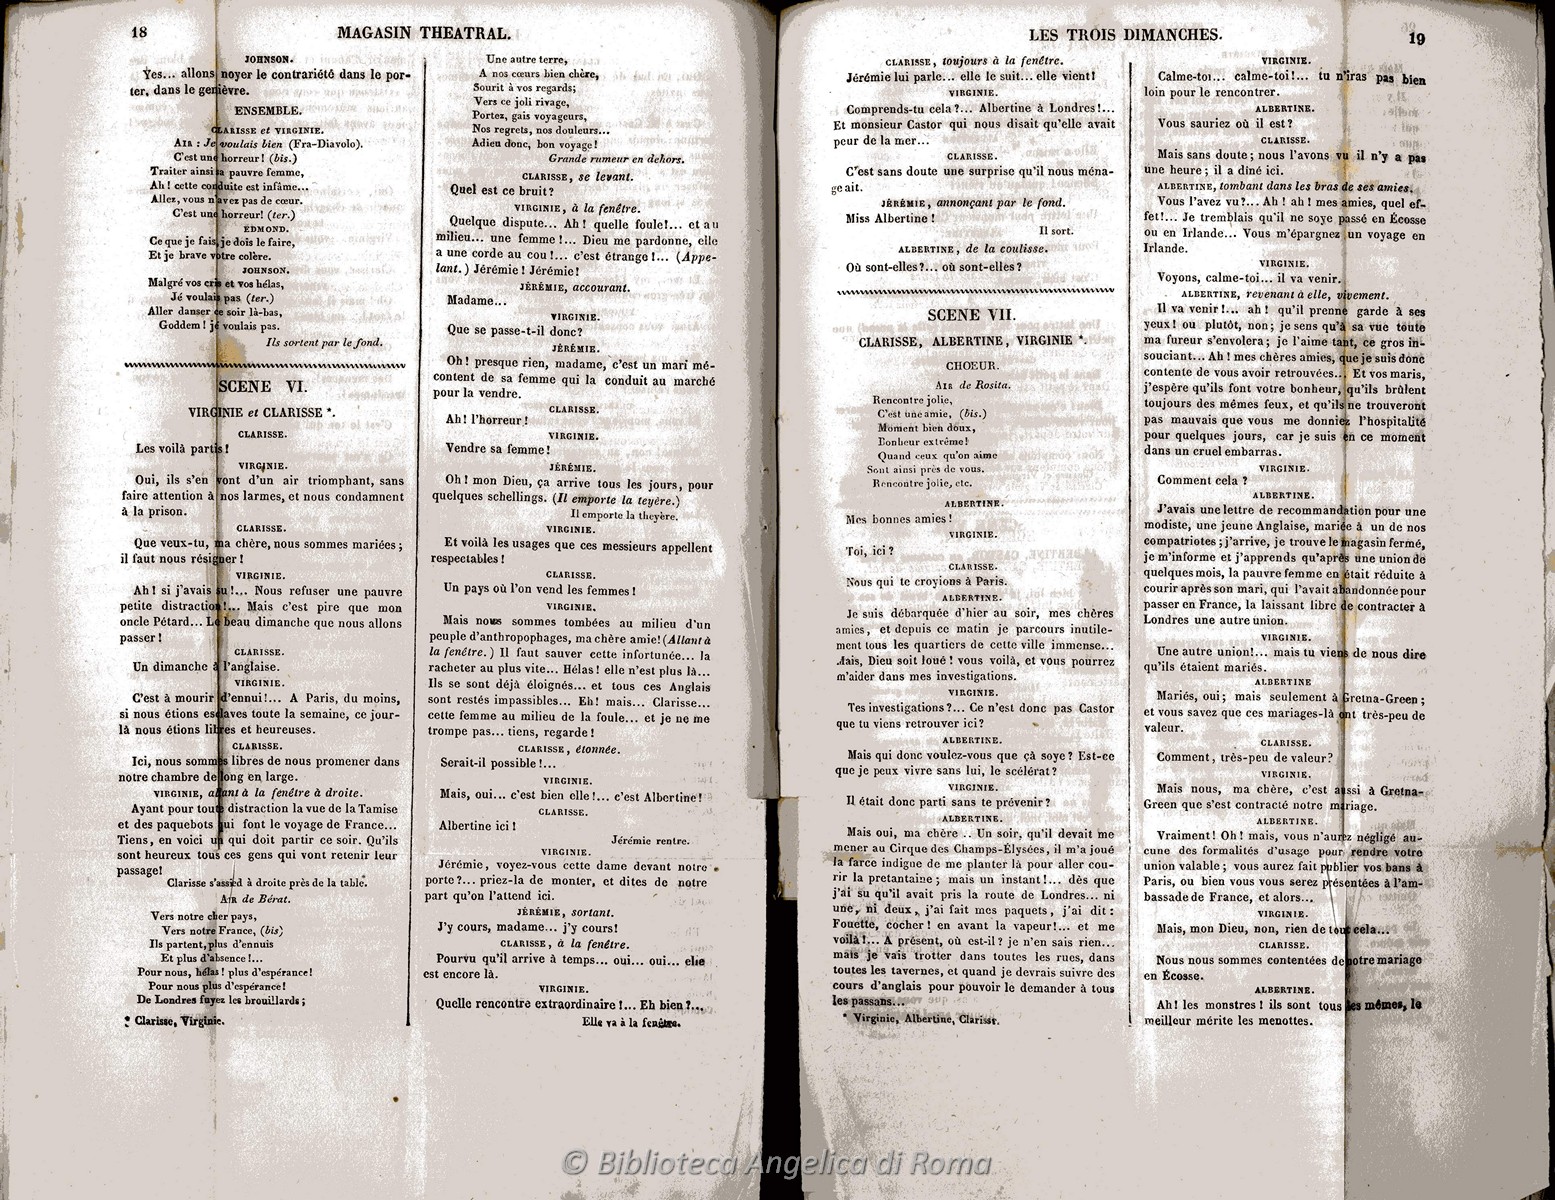 18
MAGASIN THEATRAL.
JOHNSON.
Yes... allons noyer le contrariété dans le por-
ter, dans le genièvre.
ENSEMBLE.
CLARISSE et VIRGINIE.
AIR : Je voulais bien (Fra-Diavolo).
C'est une horreur! (bis.)
Traiter ainsi sa pauvre femme,
Ah! cette conduite est infâme...
Allez, vous n'avez pas de cœur.
C'est une horreur! (ter.)
EDMOND.
Ce que je fais, je dois le faire,
Et je brave votre colère.
JOHNSON.
Malgré vos cris et vos hélas,
Jé voulais pas (ter.)
Aller danser ce soir là-bas,
Goddem! jé voulais pas.
Ils sortent par le fond.
SCENE VI.
VIRGINIE et CLARISSE *.
CLARISSE.
Les voilà partis!
VIRGINIE.
Oui, ils s'en vont d'un air triomphant, sans
faire attention à nos larmes, et nous condamnent
à la prison.
CLARISSE.
Que veux-tu, ma chère, nous sommes mariées;
il faut nous résigner!
VIRGINIE.
Ah! si j'avais su!... Nous refuser une pauvre
petite distraction!... Mais c'est pire que mon
oncle Pétard... Le beau dimanche que nous allons
passer!
CLARISSE.
Un dimanche à l'anglaise.
VIRGINIE.
C'est à mourir d'ennui!... A Paris, du moins,
si nous étions esclaves toute la semaine, ce jour-
là nous étions libres et heureuses.
CLARISSE.
Ici, nous sommes libres de nous promener dans
notre chambre de long en large.
VIRGINIE, allant à la fenêtre à droite.
Ayant pour toute distraction la vue de la Tamise
et des paquebots qui font le voyage de France...
Tiens, en voici un qui doit partir ce soir. Qu'ils
sont heureux tous ces gens qui vont retenir leur
passage!
Clarisse s'assied à droite près de la table.
AIR de Bérat.
Vers notre cher pays,
Vers notre France, (bis)
Ils partent, plus d'ennuis
Et plus d'absence!...
Pour nous, hélas! plus d'espérance!
Pour nous plus d'espérance!
De Londres fuyez les brouillards;
* Clarisse, Virginie.
Une autre terre,
A nos cœurs bien chère,
Sourit à vos regards;
Vers ce joli rivage,
Portez, gais voyageurs,
Nos regrets, nos douleurs...
Adieu donc, bon voyage!
Grande rumeur en dehors.
CLARISSE, se levant.
Quel est ce bruit?
VIRGINIE, à la fenêtre.
Quelque dispute... Ah! quelle foule!... et au
milieu... une femme!... Dieu me pardonne, elle
a une corde au cou!... c'est étrange!... (Appe-
lant.) Jérémie! Jérémie!
JÉRÉMIE, accourant.
Madame...
VIRGINIE.
Que se passe-t-il donc?
JÉRÉMIE.
Oh! presque rien, madame, c'est un mari mé-
content de sa femme qui la conduit au marché
pour la vendre.
CLARISSE.
Ah! l'horreur!
VIRGINIE.
Vendre sa femme!
JÉRÉMIE.
Oh! mon Dieu, ça arrive tous les jours, pour
quelques schellings. (Il emporte la teyère.)
Il emporte la theyère.
VIRGINIE.
Et voilà les usages que ces messieurs appellent
respectables!
CLARISSE.
Un pays où l'on vend les femmes!
VIRGINIE.
Mais nous sommes tombées au milieu d'un
peuple d'anthropophages, ma chère amie! (Allant à
la fenêtre.) Il faut sauver cette infortunée... la
racheter au plus vite... Hélas! elle n'est plus là...
Ils se sont déjà éloignés... et tous ces Anglais
sont restés impassibles... Eh! mais... Clarisse...
cette femme au milieu de la foule... et je ne me
trompe pas... tiens, regarde!
CLARISSE, étonnée.
Serait-il possible!...
VIRGINIE.
Mais, oui... c'est bien elle!... c'est Albertine!
CLARISSE.
Albertine ici!
Jérémie rentre.
VIRGINIE.
Jérémie, voyez-vous cette dame devant notre
porte?... priez-la de monter, et dites de notre
part qu'on l'attend ici.
JÉRÉMIE, sortant.
J'y cours, madame... j'y cours!
CLARISSE, à la fenêtre.
Pourvu qu'il arrive à temps... oui... oui... elle
est encore là.
VIRGINIE.
Quelle rencontre extraordinaire!... Eh bien?...
Elle va à la fenêtre.
LES TROIS DIMANCHES.
19
CLARISSE, toujours à la fenêtre.
Jérémie lui parle... elle le suit... elle vient!
VIRGINIE.
Comprends-tu cela?... Albertine à Londres!...
Et monsieur Castor qui nous disait qu'elle avait
peur de la mer...
CLARISSE.
C'est sans doute une surprise qu'il nous ména-
geait.
JÉRÉMIE, annonçant par le fond.
Miss Albertine!
Il sort.
ALBERTINE, de la coulisse.
Où sont-elles?... où sont-elles?
SCENE VII.
CLARISSE, ALBERTINE, VIRGINIE *.
CHOEUR.
AIR de Rosita.
Rencontre jolie,
C'est une amie, (bis.)
Moment bien doux,
Bonheur extrême!
Quand ceux qu'on aime
Sont ainsi près de vous.
Rencontre jolie, etc.
ALBERTINE.
Mes bonnes amies!
VIRGINIE.
Toi, ici?
CLARISSE.
Nous qui te croyions à Paris.
ALBERTINE.
Je suis débarquée d'hier au soir, mes chères
amies, et depuis ce matin je parcours inutile-
ment tous les quartiers de cette ville immense...
Mais, Dieu soit loué! vous voilà, et vous pourrez
m'aider dans mes investigations.
VIRGINIE.
Tes investigations?... Ce n'est donc pas Castor
que tu viens retrouver ici?
ALBERTINE.
Mais qui donc voulez-vous que çà soye? Est-ce
que je peux vivre sans lui, le scélérat?
VIRGINIE.
Il était donc parti sans te prévenir?
ALBERTINE.
Mais oui, ma chère .. Un soir, qu'il devait me
mener au Cirque des Champs-Élysées, il m'a joué
la farce indigne de me planter là pour aller cou-
rir la pretantaine; mais un instant!... dès que
j'ai su qu'il avait pris la route de Londres... ni
une, ni deux, j'ai fait mes paquets, j'ai dit:
Fouette, cocher! en avant la vapeur!... et me
voilà!... A présent, où est-il? je n'en sais rien...
mais je vais trotter dans toutes les rues, dans
toutes les tavernes, et quand je devrais suivre des
cours d'anglais pour pouvoir le demander à tous
les passans...
* Virginie, Albertine, Clarisse.
VIRGINIE.
Calme-toi... calme-toi!... tu n'iras pas bien
loin pour le rencontrer.
ALBERTINE.
Vous sauriez où il est?
CLARISSE.
Mais sans doute; nous l'avons vu il n'y a pas
une heure; il a dîné ici.
ALBERTINE, tombant dans les bras de ses amies.
Vous l'avez vu?... Ah! ah! mes amies, quel ef-
fet!... Je tremblais qu'il ne soye passé en Écosse
ou en Irlande... Vous m'épargnez un voyage en
Irlande.
VIRGINIE.
Voyons, calme-toi... il va venir.
ALBERTINE, revenant à elle, vivement.
Il va venir!... ah! qu'il prenne garde à ses
yeux! ou plutôt, non; je sens qu'à sa vue toute
ma fureur s'envolera; je l'aime tant, ce gros in-
souciant... Ah! mes chères amies, que je suis donc
contente de vous avoir retrouvées... Et vos maris,
j'espère qu'ils font votre bonheur, qu'ils brûlent
toujours des mêmes feux, et qu'ils ne trouveront
pas mauvais que vous me donniez l'hospitalité
pour quelques jours, car je suis en ce moment
dans un cruel embarras.
VIRGINIE.
Comment cela?
ALBERTINE.
J'avais une lettre de recommandation pour une
modiste, une jeune Anglaise, mariée à un de nos
compatriotes; j'arrive, je trouve le magasin fermé,
je m'informe et j'apprends qu'après une union de
quelques mois, la pauvre femme en était réduite à
courir après son mari, qui l'avait abandonnée pour
passer en France, la laissant libre de contracter à
Londres une autre union.
VIRGINIE.
Une autre union!... mais tu viens de nous dire
qu'ils étaient mariés.
ALBERTINE
Mariés, oui; mais seulement à Gretna-Green;
et vous savez que ces mariages-là ont très-peu de
valeur.
CLARISSE.
Comment, très-peu de valeur?
VIRGINIE.
Mais nous, ma chère, c'est aussi à Gretna-
Green que s'est contracté notre mariage.
ALBERTINE.
Vraiment! Oh! mais, vous n'aurez négligé au-
cune des formalités d'usage pour rendre votre
union valable; vous aurez fait publier vos bans à
Paris, ou bien vous vous serez présentées à l'am-
bassade de France, et alors...
VIRGINIE.
Mais, mon Dieu, non, rien de tout cela...
CLARISSE.
Nous nous sommes contentées de notre mariage
en Écosse.
ALBERTINE.
Ah! les monstres! ils sont tous les mêmes, le
meilleur mérite les menottes.
© Biblioteca Angelica di Roma